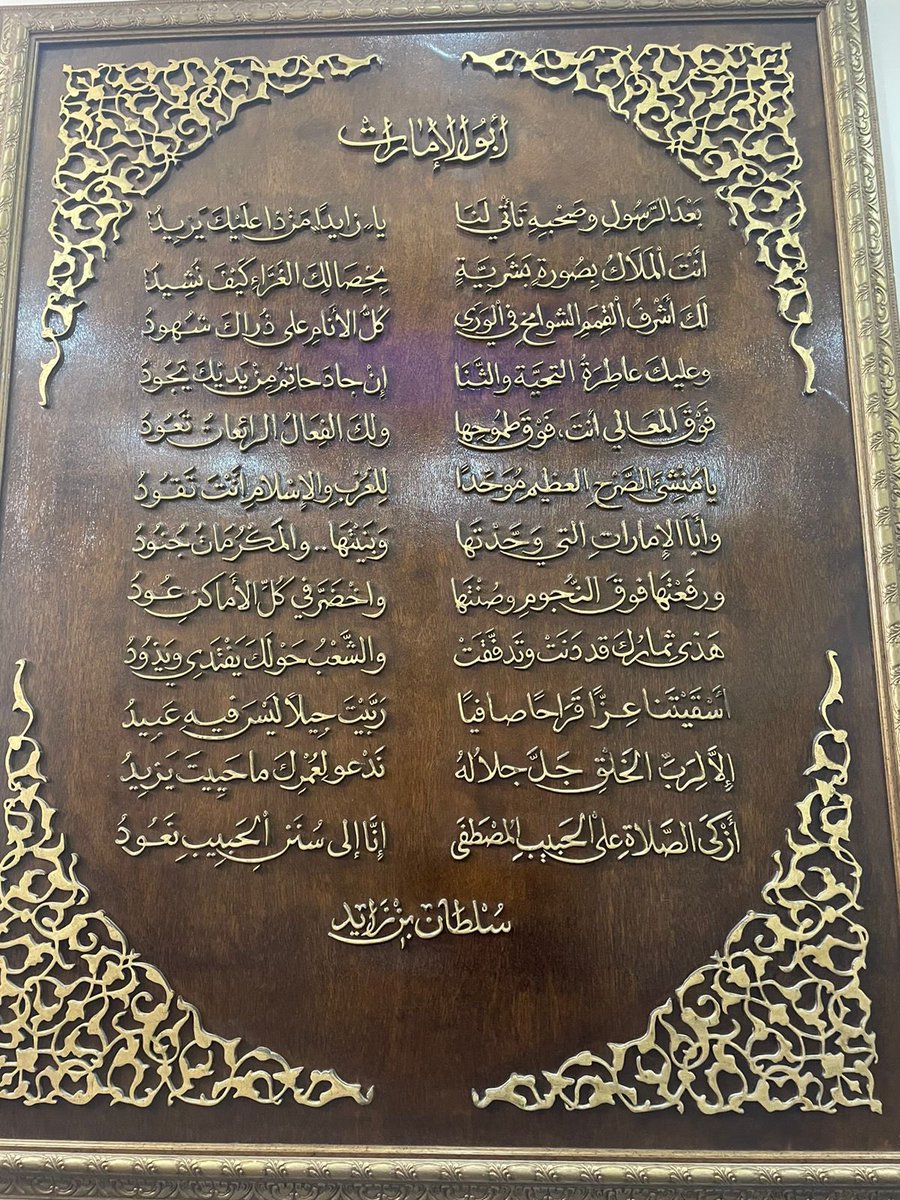 أبُو الإمارات
بَعْدَ الرَّسُولِ وصَحْبِهِ تَأتي لَنَا يا.. زايداً.. مَنْ ذا عليْكَ يَزيدُ!
أنْتَ الْمَلَاكُ بِصُورةٍ بَشَريَّةٍ بِخِصَالِكَ الغُرَّاءِ كَيْفَ نُشِيدُ!
لكَ أشْرَفُ القِمَمِ الشوامخِ في الْوَرَى كلُّ الأنامِ على ذُراكَ شُهُودُ
وعليكَ عاطِرةُ التحيَّة والثَّنا إنْ جادَ حاتِمُ مِنْ يَدَيْكَ يَجُودُ
فَوْقَ المَعَالي أنتَ، فَوْقَ طُمُوحِها ولكَ الفِعَالُ الرائِعَاتُ تَعُودُ
يا مُنْشِئَ الصَّرْحِ العظيمِ مُوَحَّدًا لِلعُرْبِ والإسْلامِ أنْتَ تَقُودُ
وأبَا الإماراتِ التي وحَّدْتَها وبَنَيْتَها.. والمَكْرُمَاتُ جُنُودُ
ورفَعْتَها فوقَ النُّجومِ وصُنْتَها واخْضَرَّ في كلِّ الأماكنِ عُودُ
هَذي ثمارُكَ قد دَنَتْ وتَدفَّقَتْ والشَّعْبُ حَوْلَكَ يَفْتَدي ويَذُودُ
أسْقَيْتَنا عِزًّا قَرَاحًا صافيًا رَبَّيْتَ جِيلًا لَيْسَ فيهِ عَبِيدُ
إلاَّ لِرَبِّ الخَلْقِ جَلَّ جلالُهُ نَدْعو لِعُمْرِكَ ما حَيِيتَ يَزِيدُ
أزْكَى الصَّلاةِ على الحَبيبِ المُصْطَفَى إنَّا إلى سُنَنِ الحَبِيبِ نَعُودُ
سُلْطان بنْ زَايد